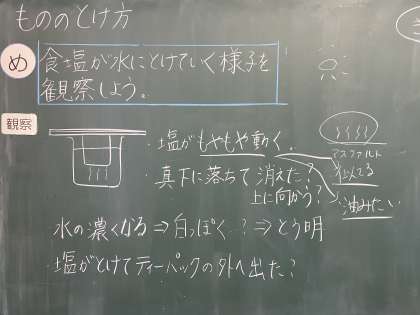 もののとけ方
め
食塩が水にとけていく様子を
観察しよう。
観察
・塩がもやもや動く。
アスファルト
似てる
・真下に落ちて消えた？
上に向かう？
油みたい
水の濃くなる⇒白っぽく？⇒とう明
塩がとけてティーパックの外へ出た？